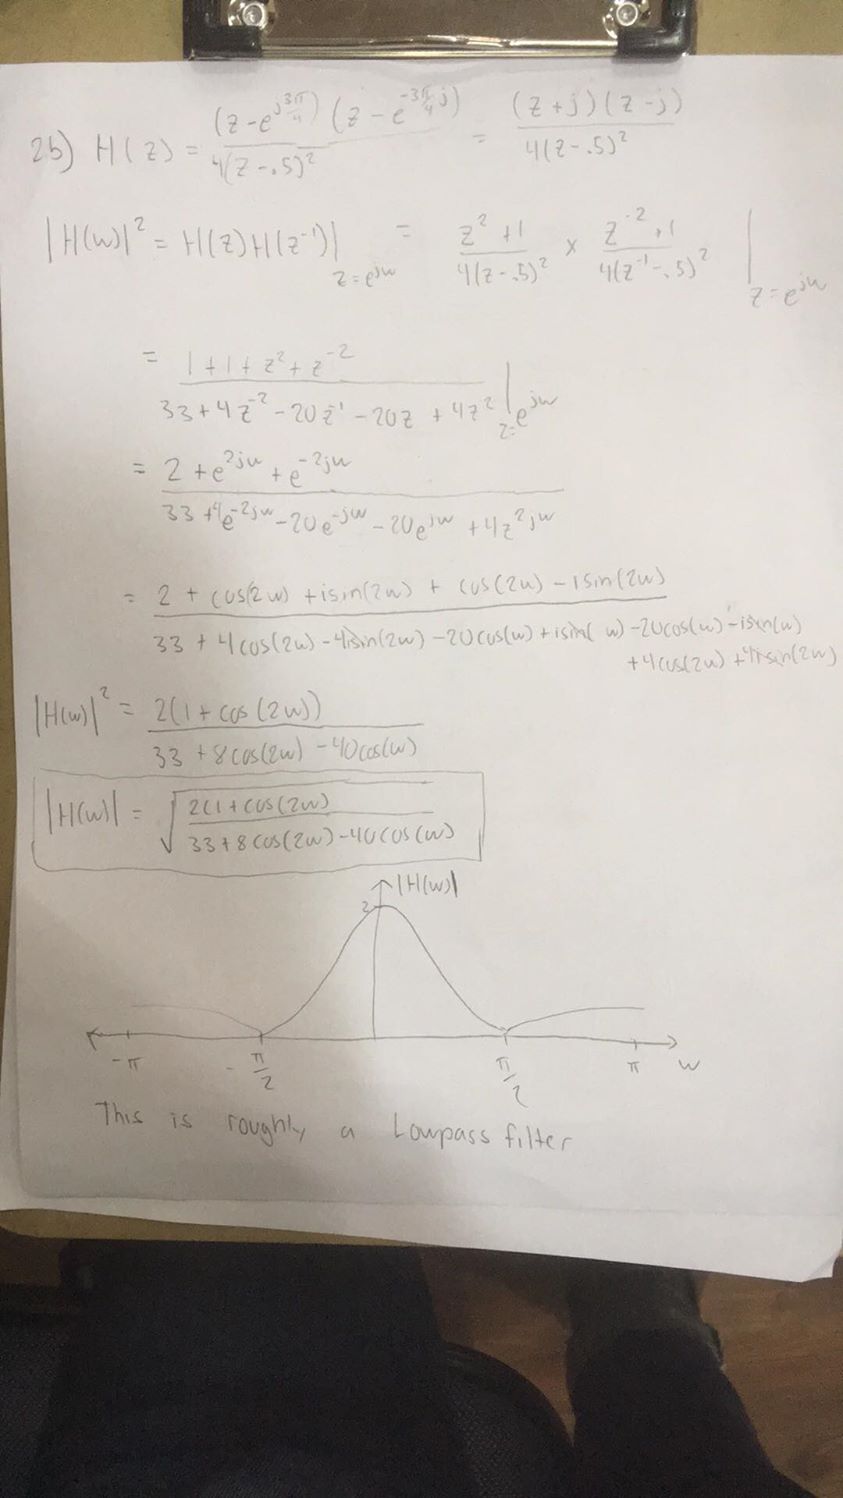 2b) H(z) = (z-e^{j3π/4})(z-e^{-3π/4 j}) / 4(z-.5)^2 = (z+j)(z-j) / 4(z-.5)^2
|H(w)|^2 = H(z)H(z^{-1})|_{z=e^{jw}} = z^2+1 / 4(z-.5)^2 × z^{-2}+1 / 4(z^{-1}-.5)^2 |_{z=e^{jw}}
= 1+1+z^2+z^{-2} / 33+4z^{-2}-20z^{-1}-20z+4z^2 |_{z=e^{jw}}
= 2+e^{2jw}+e^{-2jw} / 33+4e^{-2jw}-20e^{-jw}-20e^{jw}+4z^{2jw}
= 2+cos(2w)+isin(2w)+cos(2w)-isin(2w) / 33+4cos(2w)-4isin(2w)-20cos(w)+isin(w)-20cos(w)-isin(w)
+4cos(2w)+4isin(2w)
|H(w)|^2 = 2(1+cos(2w)) / 33+8cos(2w)-40cos(w)
|H(w)| = √(2(1+cos(2w) / 33+8cos(2w)-40cos(w))
|H(w)|
2
-π -π/2 π/2 π w
This is roughly a Lowpass filter